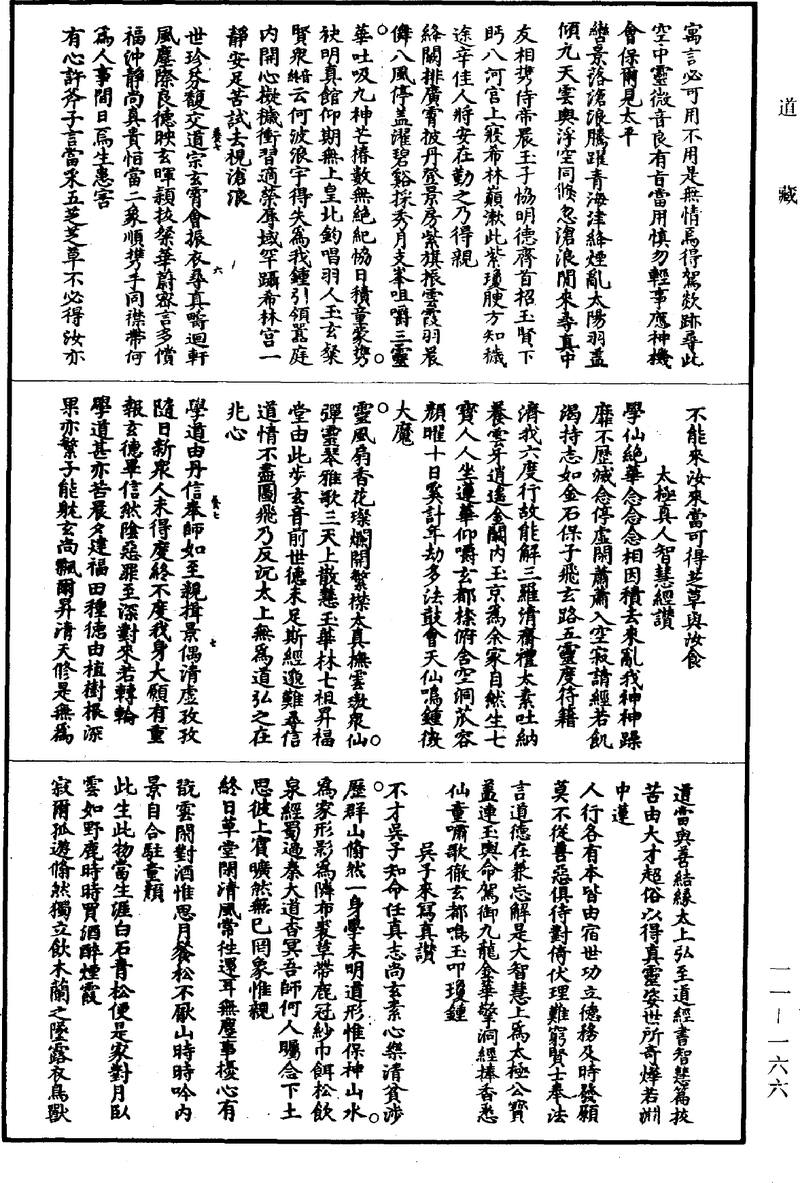 道藏
寓言必可用不用是無情焉得駕欻跡尋此
空中靈微音良有旨當用慎勿輕事應神機
會保爾見太平
轡景落滄浪騰躍青海津絳煙亂太陽羽蓋
傾九天雲輿浮空同倏忽滄浪間來尋真中
友相攜侍帝晨王子協明德齊首招玉賢下
眄八河宮上寢希林巔漱此紫瓊腴方知穢
途辛佳人將安在勤之乃得親
絳闕排廣霄披丹登景房紫旗振雲霞羽晨
儛八風停蓋濯碧谿採秀月支峯咀嚼三靈
華吐吸九神芒椿數無絕紀協日積童蒙攜
袂明真館仰期無上皇北鈞唱羽人玉玄粲
賢衆䛦云何波浪宇得失為我鍾引領囂庭
内開心擬穢衝習適榮辱域罕躡希林宮一
靜安足苦試去視滄浪
世珍芬馥交道宗玄霄會振衣尋真疇迴軒
風塵際良德映玄暉穎拔粲華蔚密言多償
福沖靜尚真貴恒當二象順攜手同襟帶何
為人事間日焉生患害
有心許斧子言當采五芝芝草不必得汝亦
不能來汝來當可得芝草與汝食
太極真人智慧經讚
學仙絕華念念念相因積去來亂我神神躁
靡不歷滅念停虛閑蕭蕭入空寂請經若飢
渴持志如金石保子飛玄路五靈度符籍
濟我六度行故能解三羅清齋禮太素吐納
養雲牙逍遙金闕内玉京為余家自然生七
寶人人坐蓮華仰嚼玄都㮈俯含空洞苽容
顏曜十日奚計年劫多法鼓會天仙鳴鍾徵
大魔
靈風扇香花璨爛開繁襟太真撫雲璈衆仙
彈靈琴雅歌三天上散慧玉華林七祖昇福
堂由此步玄音前世德未足斯經邈難尋信
道情不盡圖飛乃反沉太上無為道弘之在
兆心
學道由丹信奉師如至親揖景偶清虛孜孜
隨日新衆人未得度終不度我身大願有重
報玄德畢信然陰惡罪至深對來若轉輪
學道甚亦苦晨夕建福田種德由植樹根深
果亦繁子能躭玄尚飄爾昇清天修是無為
道當與善結緣太上弘至道經書智慧篇拔
苦由大才超俗以得真靈姿世所奇燁若淵
中蓮
人行各有本皆由宿世功立德務及時發願
莫不從善惡俱待對倚伏理難窮賢士奉法
言道德在兼忘解是大智慧上為太極公寶
蓋連玉輿命駕御九龍金華擎洞經捧香悉
仙童嘯歌徹玄都鳴玉叩瓊鍾
吳子來寫真讚
不才吳子知命任真志尚玄素心樂清貧涉
歷群山翛然一身學未明道形惟保神山水
為家形影為隣布裘草帶鹿冠紗巾餌松飲
泉經蜀過秦大道杳冥吾師何人矚念下土
思彼上賓曠然無已罔象惟親
終日草堂閑清風常往還耳無塵事擾心有
翫雲閑對酒惟思月餐松不厭山時時吟内
景自合駐童顏
此生此物當生涯白石青松便是家對月臥
雲如野鹿時時買酒醉煙霞
寂爾孤遊翛然獨立飲木蘭之墜露衣鳥獸
一一-一六六